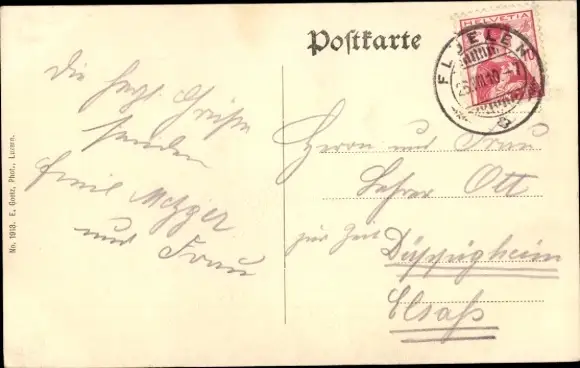 Postkarte
HELVETIA
10
FLÜELEN
Die herzl. Grüße
senden
Emil Metzger
und Frau
Herrn und Frau
Lehrer Ott
zur Zeit
Düppigheim
Elsaß
No. 1913. E. Goetz, Phot., Luzern.